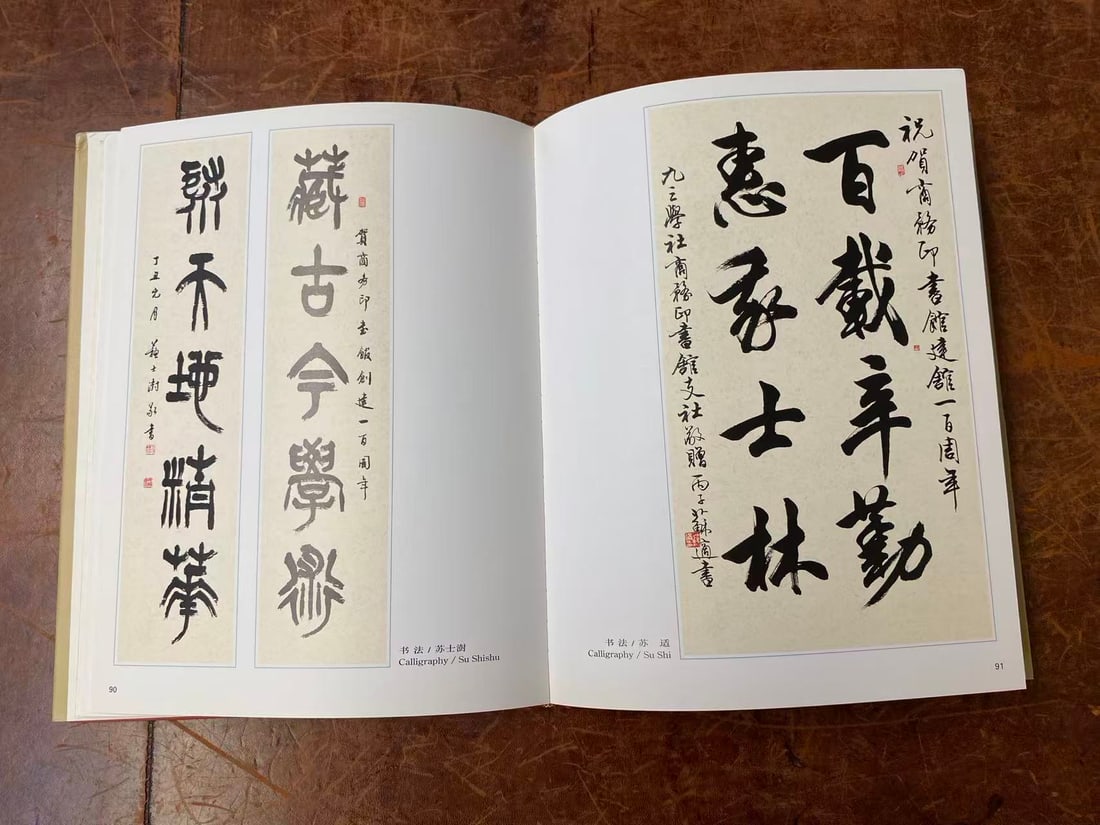 藏古今學術
賀商務印書館創建一百周年
聚天地精華
丁丑元月 蘇士澍敬書
书 法 / 苏士澍
Calligraphy / Su Shishu
90
祝賀商務印書館建舘一百周年
百載辛勤
惠我士林
九三學社商務印書舘支社敬贈 丙子 蘇適書
书 法 / 苏 适
Calligraphy / Su Shi
91